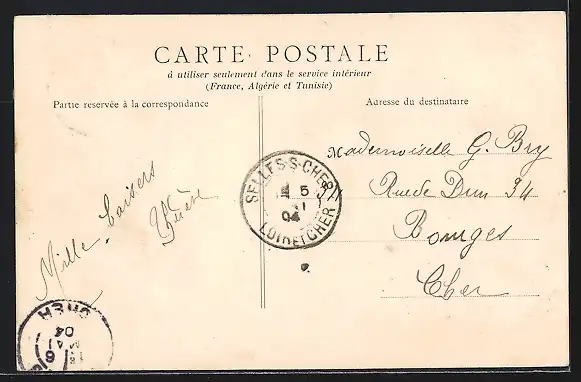 CARTE POSTALE
à utiliser seulement dans le service intérieur
(France, Algérie et Tunisie)
Partie reservée à la correspondance
Adresse du destinataire
Mademoiselle G. Bry
Rue de Dun 34
Bourges
Cher
Mille baisers
SELLES-S-CHER
5
04
LOIR ET CHER
CHER
04
6